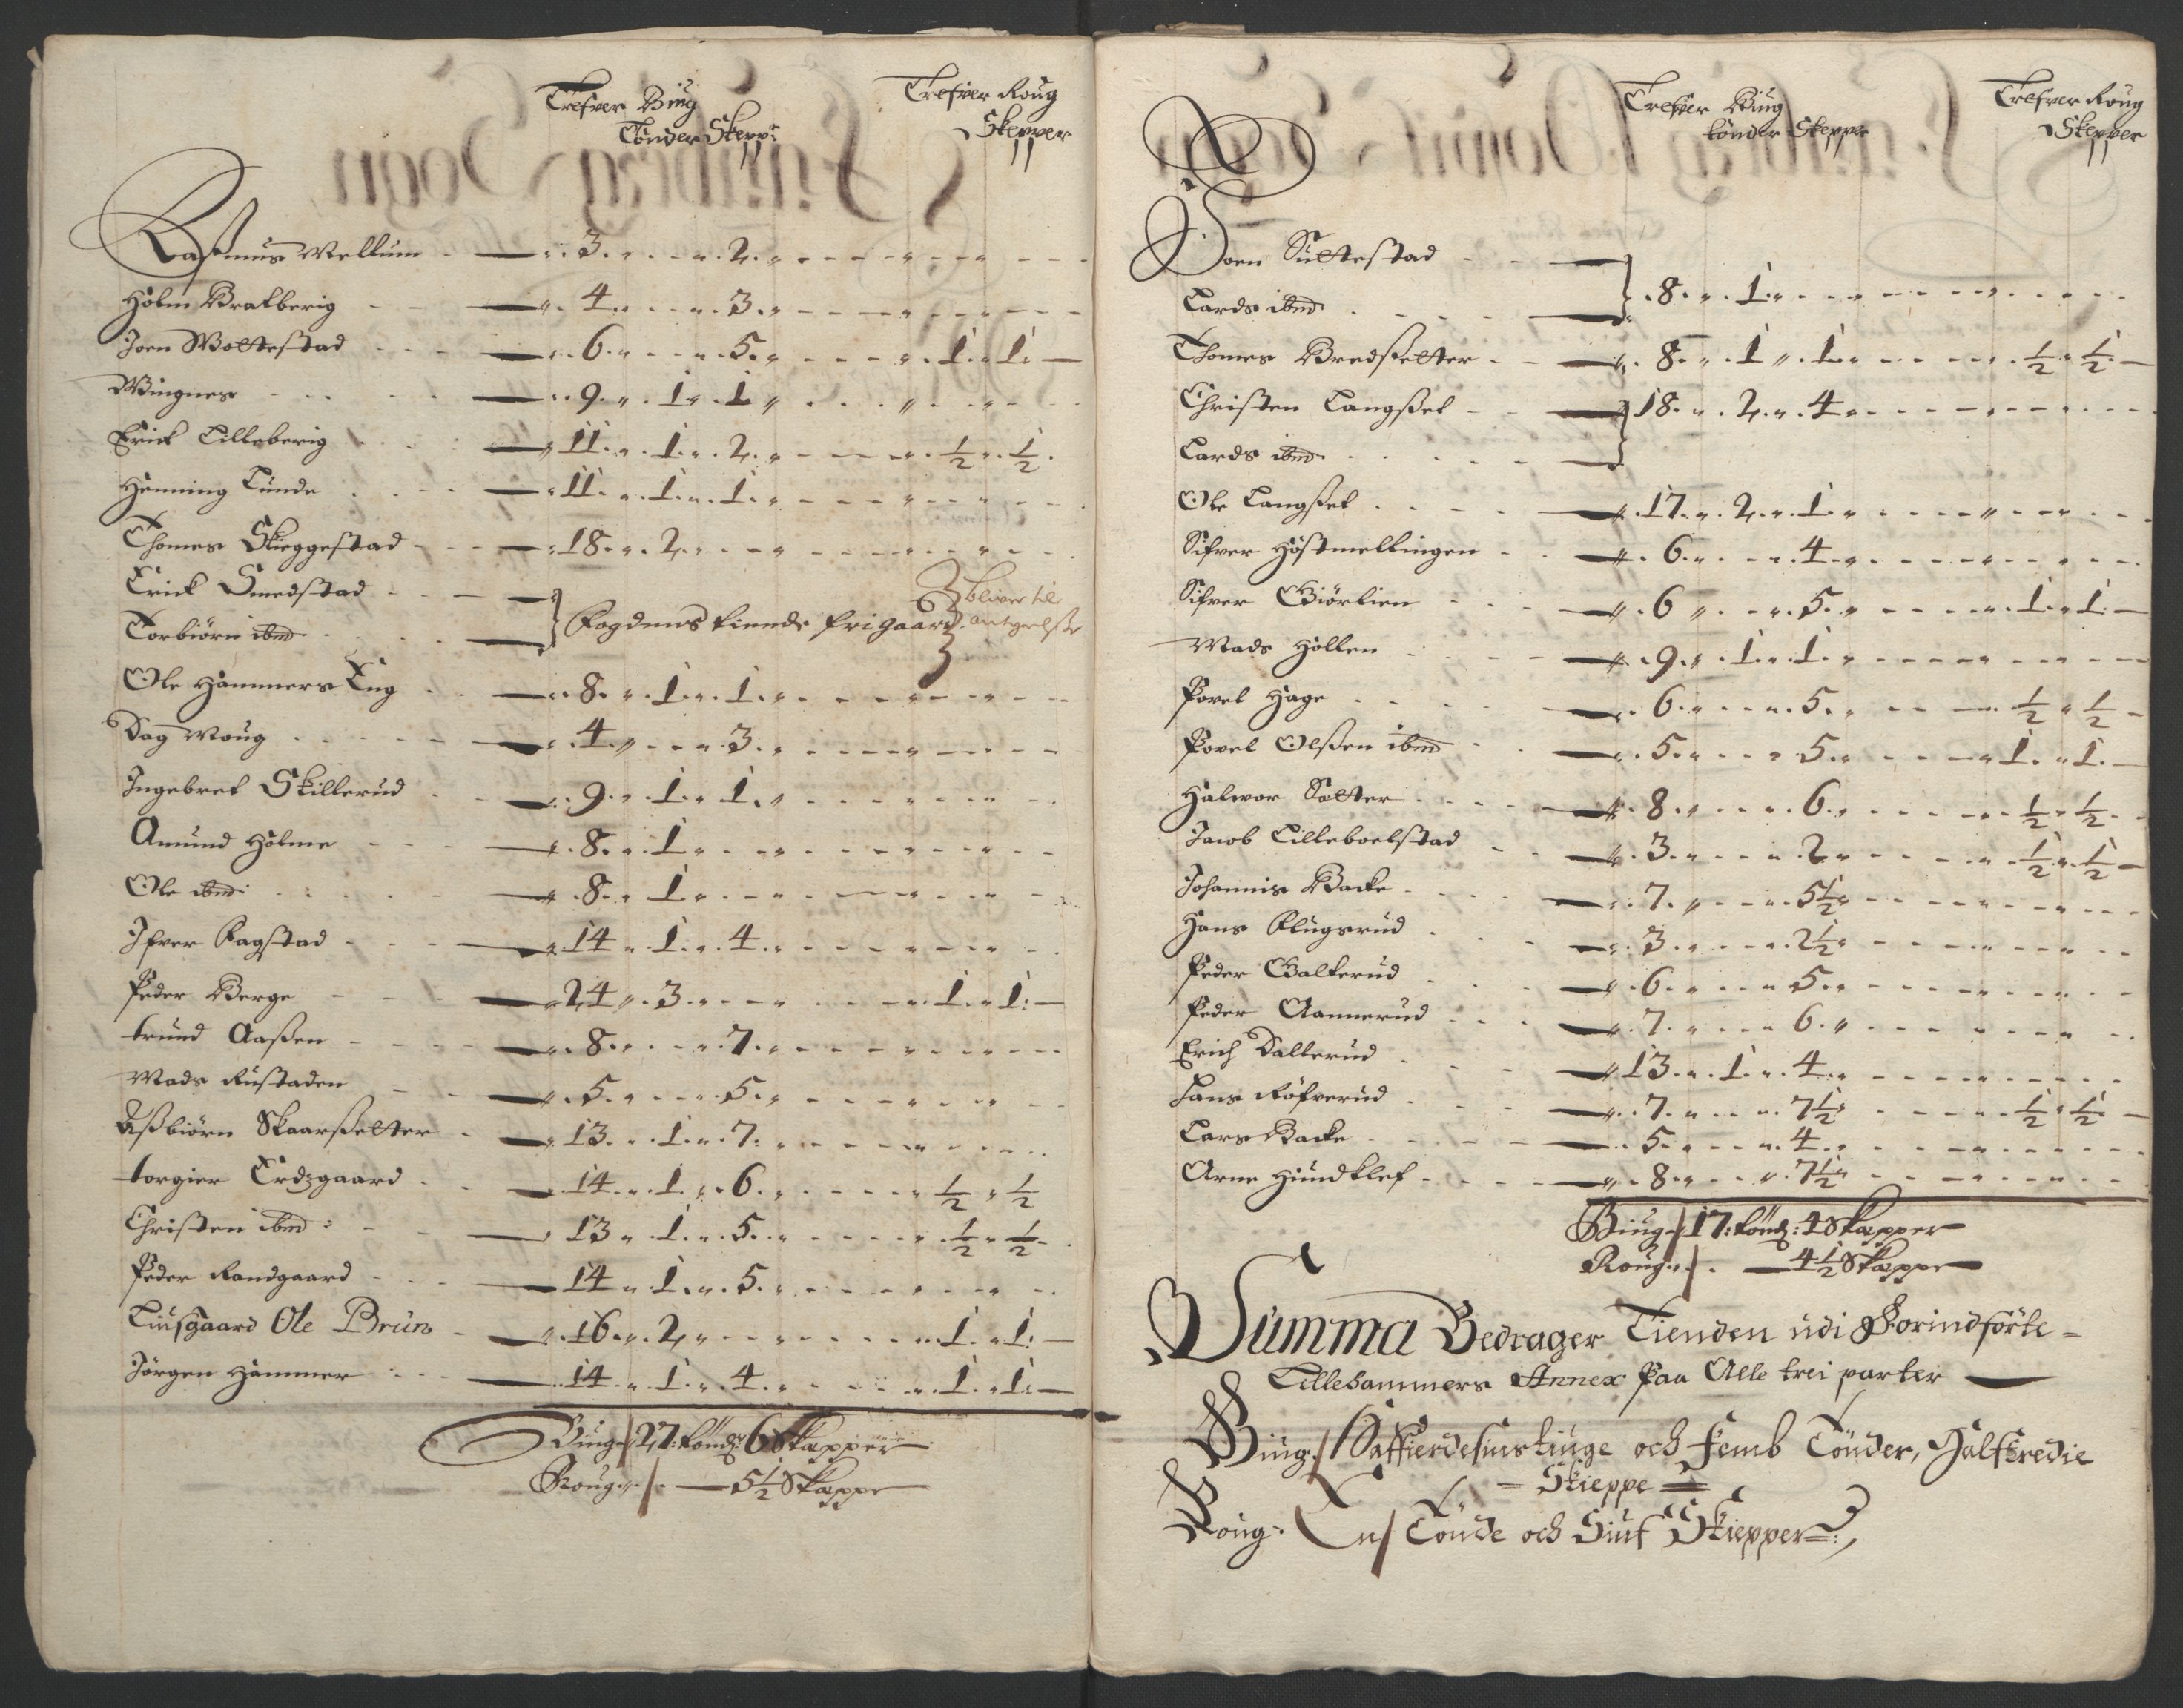 Trefver Biug
Tönder Skepp:
Trefver Roug
Skepper
Rasmus Mellum 3. 2.
Holm Bratberig 4. 3.
Joen Woltestad 6. 5. 1. 1.
Wingnes 9. 1. 1
Erick Lilleberig 11. 1. 2. 1/2. 1/2.
Henning Lunde 11. 1. 1.
Thomes Skieggestad 18. 2.
Erick Smedstad
Torbiörn ibm
Fogdens tiende frigaard
bliver til
Ole Hammers Eng 8. 1. 1.
Dag Moug 4. 3.
Ingebret Skillerud 9. 1. 1.
Amund Holme 8. 1
Ole ibm 8. 1
Ifver Fagstad 14 1. 4.
Peder Berge 24 3. 1. 1.
trund Aaßen 8. 7.
Mads Rustaden 5. 5.
Aßbiörn Skaarßetter 13. 1. 7.
torgier Erdzgaard 14. 1. 6. 1/2 1/2
Christen ibm: 13 1. 5. 1/2 1/2
Peder Randgaard 14 1. 5.
Liusgaard Ole Brun 16. 2. 1. 1.
Jörgen Hammer 14. 1. 4. 1. 1.
Biug 27: tönd: 6 Skepper
Roug 5 1/2 Skeppe
Trefver Biug
tönder Skepper
Trefver Roug
Skepper
Joen Sultestad
Lards ibm 8. 1.
Thomes Bredßetter 8. 1. 1. 1/2 1/2
Christen Langßet 18. 2. 4
Lards ibm
Ole Langßet 17. 2. 1.
Sifver Höstmellingen 6. 4.
Sifver Giörlien 6 5. 1. 1.
Mads Hollen 9. 1. 1.
Povel Hage 6. 5. 1/2 1/2
Povel Olßen ibm 5. 5. 1. 1.
Halwor Sætter 8. 6. 1/2 1/2
Jacob Lilleboelstad 3. 2 1/2 1/2
Johannis Backe 7. 5 1/2
Hans Flugsrud 3. 2 1/2
Peder Galterud 6. 5.
Peder Aannerud 7. 6.
Erich Dallerud 13. 1. 4.
Hans Röfverud 7. 7 1/2 1/2 1/2
Lars Backe 5. 4.
Arne Hundklef 8. 7 1/2
Biug 17: tönd: 4 Skepper
Roug 4 1/2 Skeppe
Summa Bedrager Tienden udi Forindförte
Lillehammers Annex paa Alle trei parter
Biug: Saffierdesinstiuge och Femb Tönder, Halftredie
Skieppe
Roug: En Tönde och Siuf Skiepper